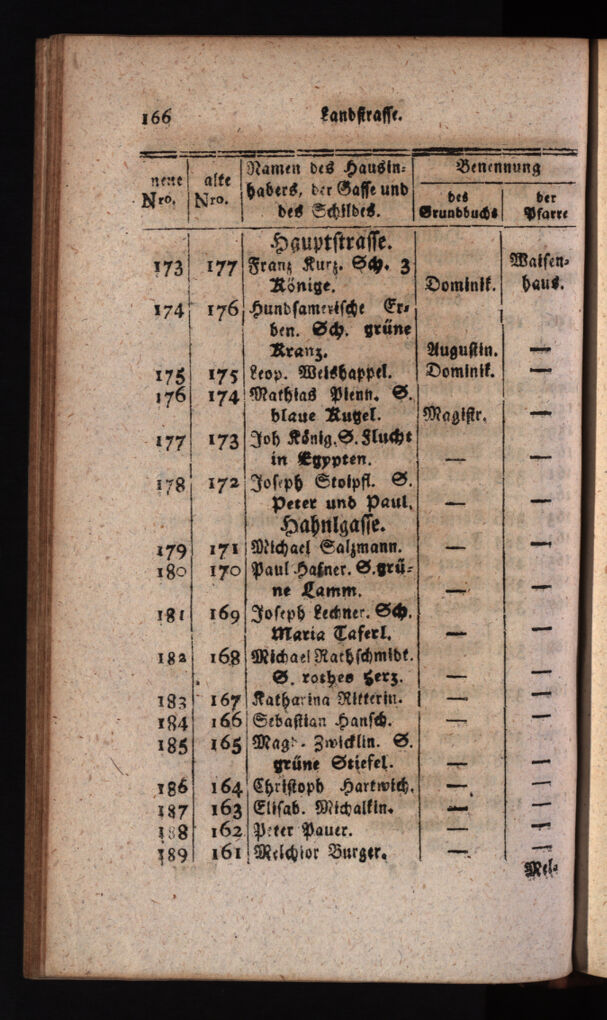 166 Landstrasse.
neue Nro. alte Nro. Namen des Hausin- Benennung
habers, der Gasse und des der
des Schildes. Grundbuchs Pfarre
Hauptstrasse.
173 177 Franz Kurz. Sch. 3 Waisen-
Könige. Dominik. haus.
174 176 Hundsamerische Er-
ben. Sch. grüne
Kranz. Augustin. —
175 175 Leop. Weishappel. Dominik. —
176 174 Mathias Pienn. S.
blaue Kugel. Magistr. —
177 173 Joh König. S. Flucht
in Egypten. — —
178 172 Joseph Stoipfl. S.
Peter und Paul. — —
Hahnlgasse.
179 171 Michael Salzmann. — —
180 170 Paul Hafner. S. grü-
ne Lamm. — —
181 169 Joseph Lechner. Sch.
Maria Taferl. — —
182 168 Michael Rathschmidt.
S. rothes Herz. — —
183 167 Katharina Ritterin. — —
184 166 Sebastian Hansch. — —
185 165 Magd. Zwicklin. S.
grüne Stiefel. — —
186 164 Christoph Hartwich. — —
187 163 Elisab. Michalkin. — —
188 162 Peter Pauer. — —
189 161 Melchior Burger. — —
Mel-